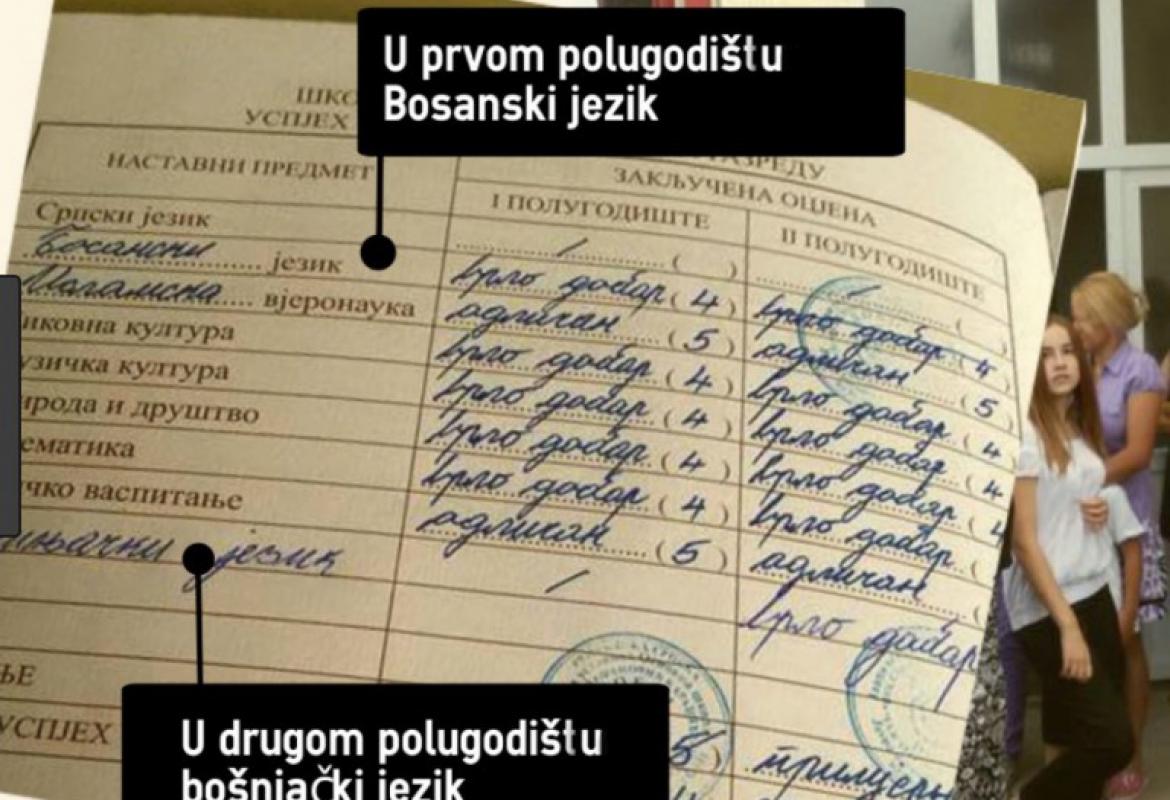 U prvom polugodištu
Bosanski jezik
ШКО
УСПЈЕХ
РАЗРЕДУ
НАСТАВНИ ПРЕДМЕТ
ЗАКЉУЧЕНА ОЦЈЕНА
I ПОЛУГОДИШТЕ
II ПОЛУГОДИШТЕ
Српски језик / ( ) / ( )
Босански језик врло добар ( 4 ) врло добар 4
Исламска вјеронаука одличан ( 5 ) одличан ( 5 )
иковна култура врло добар ( 4 ) врло добар ( 4 )
узичка култура врло добар ( 4 ) врло добар ( 4
ирода и друштво врло добар ( 4 ) врло добар ( 4
ематика врло добар ( 4 ) врло добар (
чко васпитање одличан ( 5 ) одличан (
шњачки језик / врло добар
ЊЕ 5 ) примјерн
УСПЈЕХ
U drugom polugodištu
bošnjački jezik